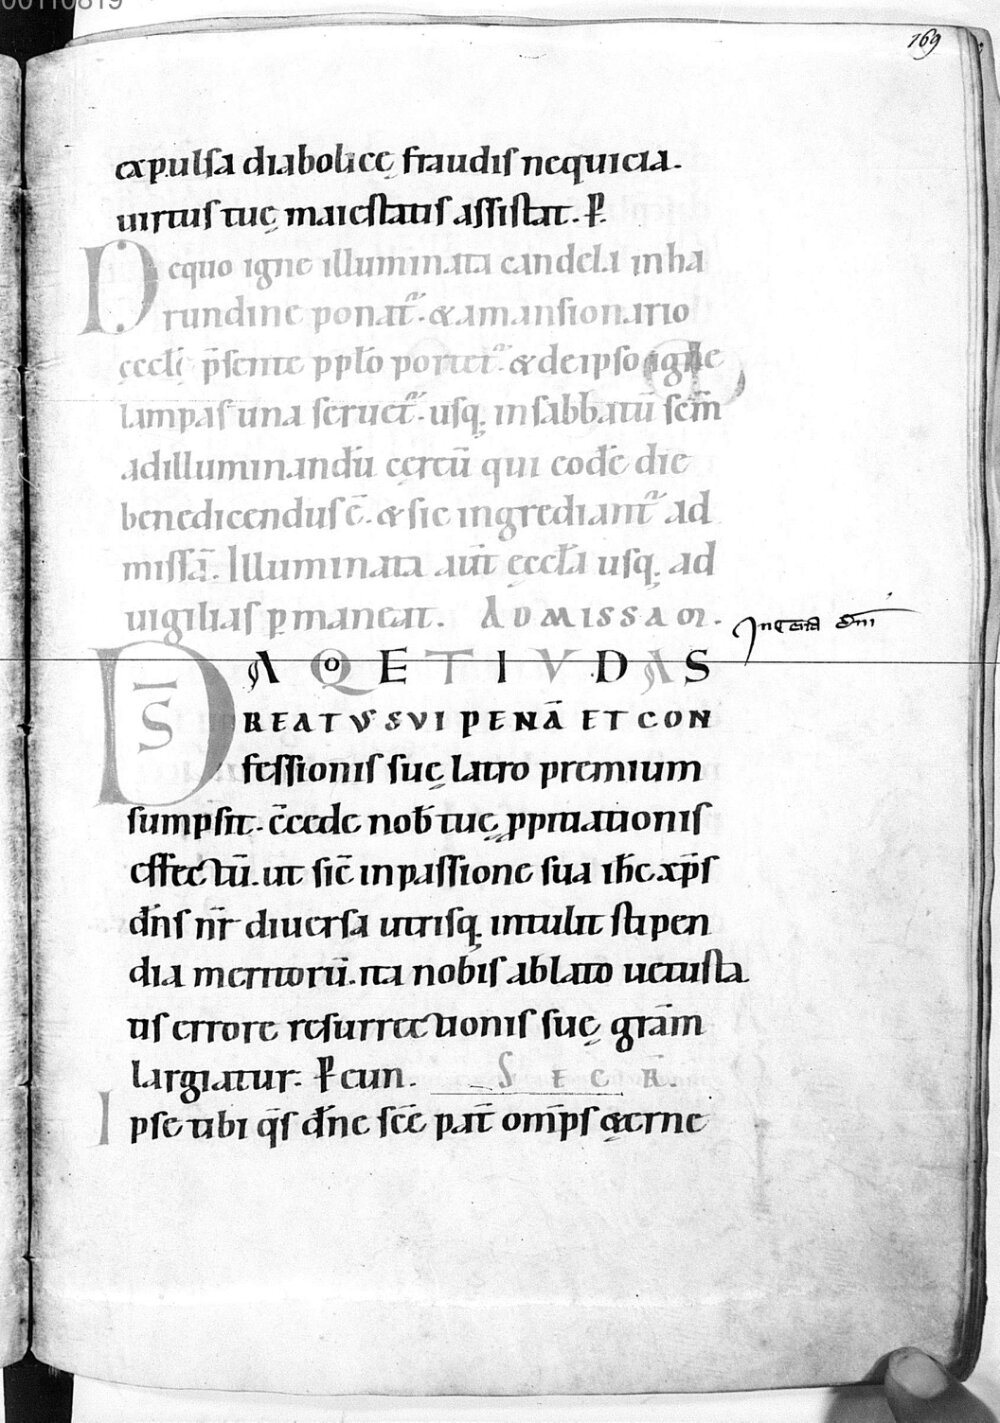 00110819
169
expulsa diabolicę fraudis nequicia.
uirtus tuę maiestatis assistat. P̄.
De quo igne illuminata candela in ha
rundine ponat᷑. & a mansionario
ęccłę p̄sente pplo portet᷑. & de ipso igne
lampas una seruet᷑. usq; in sabbatū scm̄
ad illuminandū cęreū qui eodē die
benedicendus ē. & sic ingrediant᷑ ad
missā. Illuminata aut̄ ęccła usq; ad
uigilias ꝑmaneat. AD MISSAM.
In cena dn̄i
D̄S A QO ET IVDAS
REATVS SVI PENĀ ET CON
fessionis suę latro premium
sumpsit. c̄cede nob̄ tuę ꝓpitiationis
effectū. ut sic̄ in passione sua ih̄c xp̄s
dn̄s nr̄ diuersa utrisq; intulit stipen
dia meritorū. ita nobis ablato uetusta
tis errore resurrectionis suę grām
largiatur. P̄ cun. SECR̄.
Ipse tibi q̄s dn̄e sc̄e pat̄ omp̄s ęterne